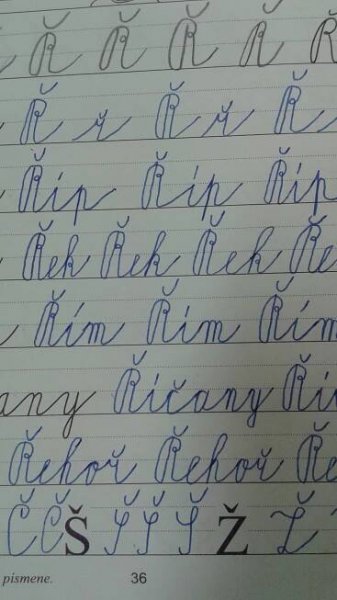 Ř Ř Ř Ř Ř
Ř ř Ř ř Ř
Říp Říp Říp
Řek Řek Řek Ře
Řím Řím Řím
any Říčany Ří
Řehoř Řehoř Ře
Č Č Š Š Š Š Ž Ž
písmene. 36